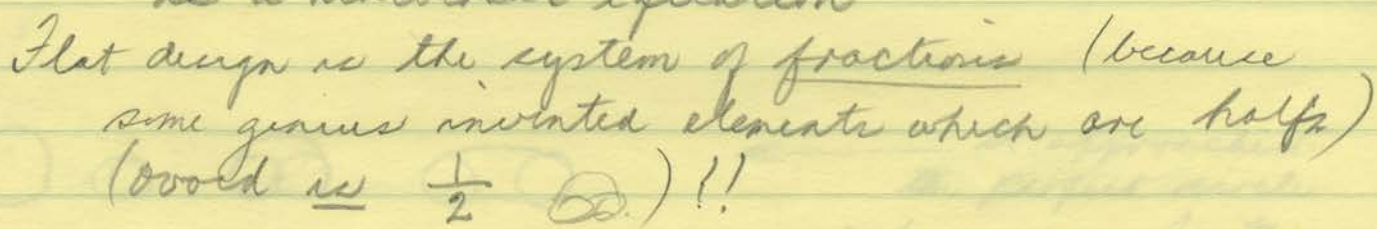 as a numerical equation
Flat design is the system of fractions (because
some genius invented elements which are halfs)
(ovoid is 1/2 ) !!